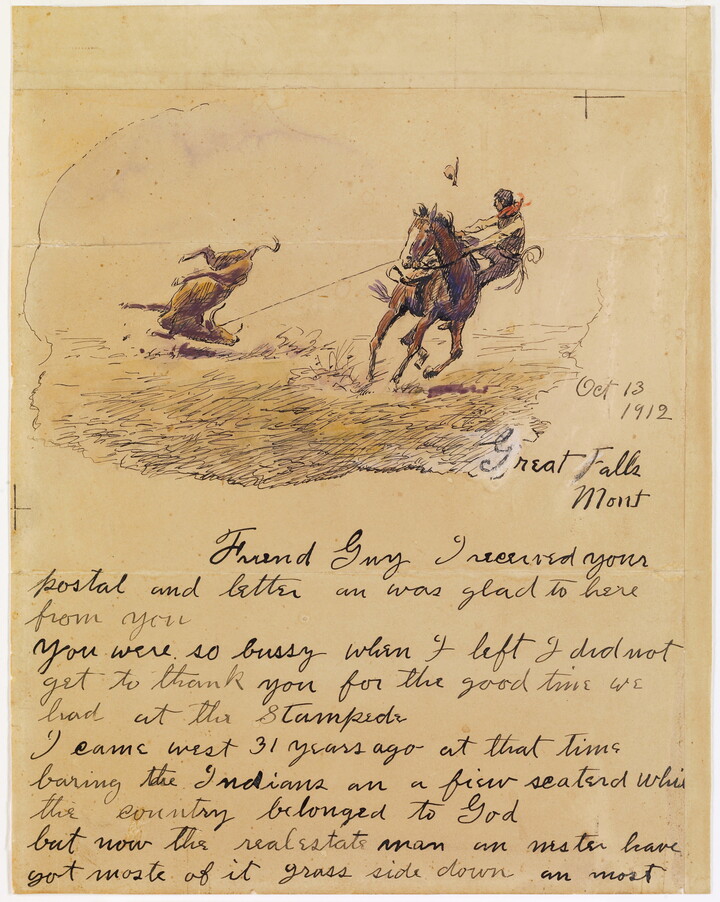 Oct 13
1912
Great Falls
Mont
Friend Guy I received your
postal and letter an was glad to here
from you
you were so bussy when I left I did not
get to thank you for the good time we
had at the Stampede
I came west 31 years ago at that time
baring the Indians an a fiew scaterd whi
the country belonged to God
but now the realestate man an nester have
got moste of it grass side down an most